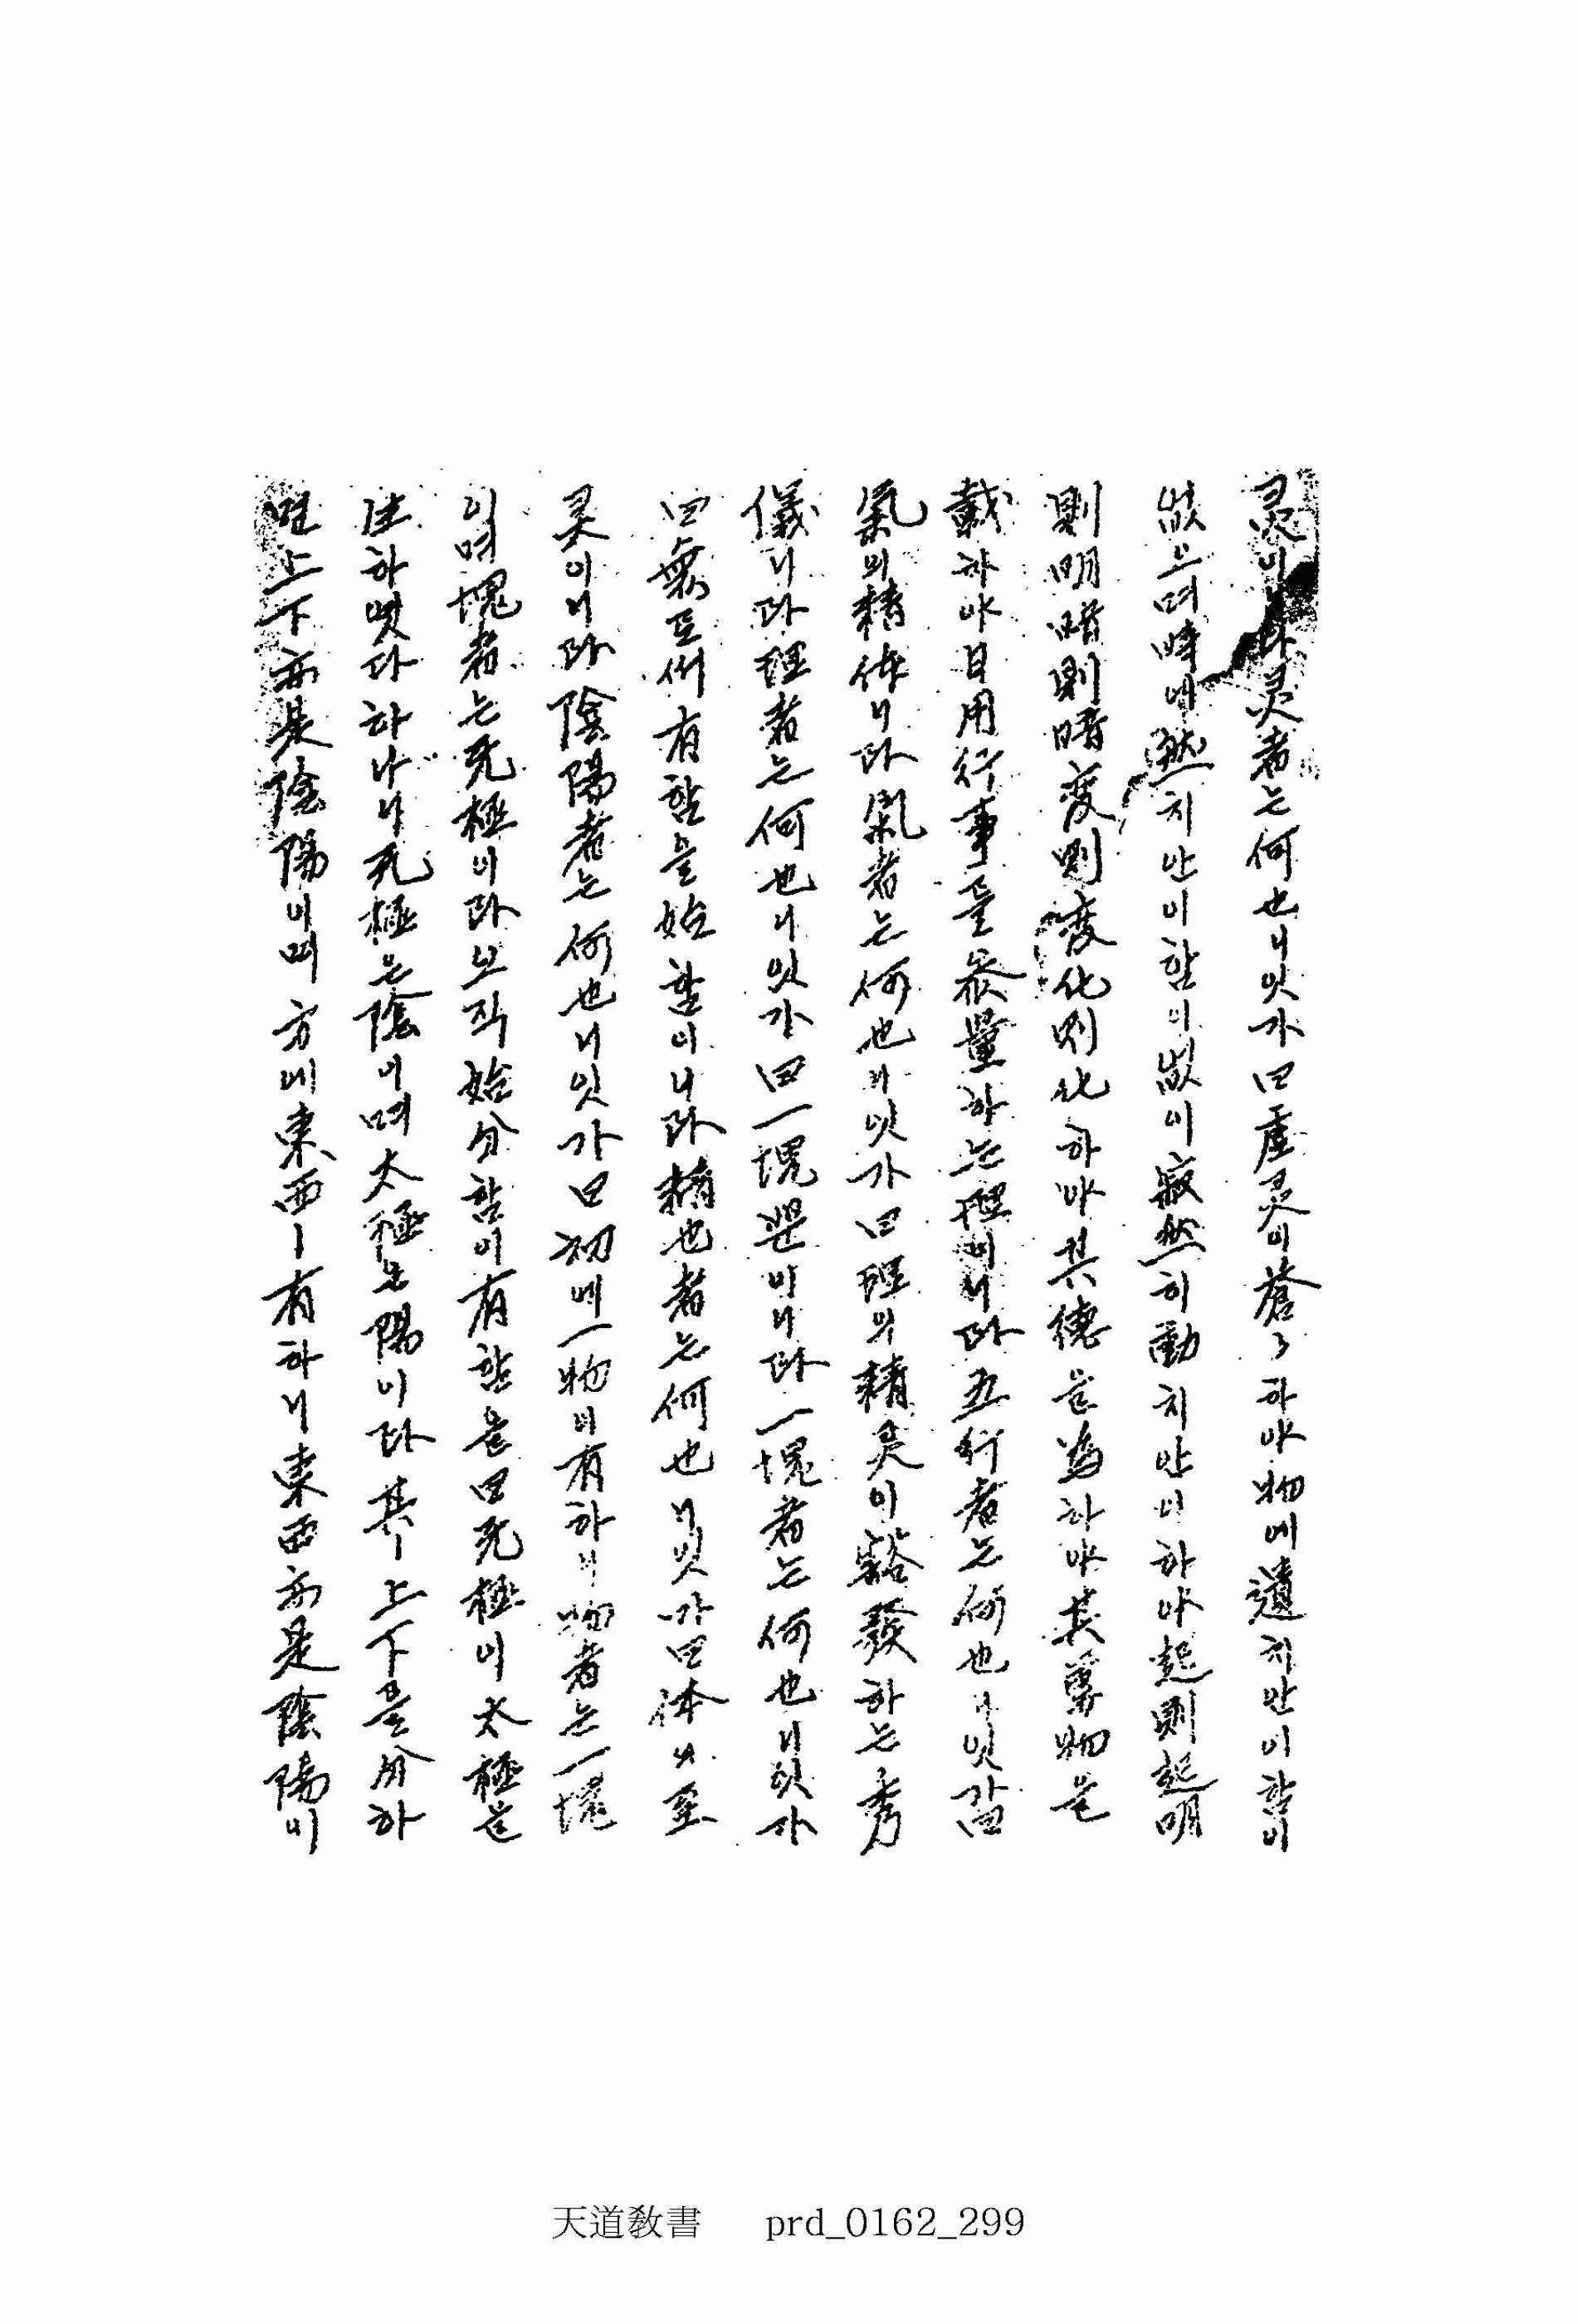 灵이니라灵者는何也니잇가曰虛灵이蒼々하야物에遺치안이함이
없으며時에然치안이함이없이寂然히動치안이하야起則起明
則明暗則暗变則变化則化하야其德을為하야其萬物을
載하야日用行事을裁量하는理이니라五行者는何也니잇가曰
氣의精体니라氣者는何也니잇가曰理의精灵이豁發하는秀
儀니라理者는何也니잇가曰一塊뿐이니라一塊者는何也니잇가
曰無로븟터有함을始함이니라精也者는何也니잇가曰体的至
灵이니라陰陽者는何也니잇가曰初에一物이有하니物者는一塊
이며塊者는无極이라오직始分함이有함을曰无極이太極을
生하엿다하나니无極은陰이며太極는陽이라其ㅣ上下를分하
면上下亦是陰陽이며方에東西ㅣ有하니東西亦是陰陽이
天道敎書 prd_0162_299